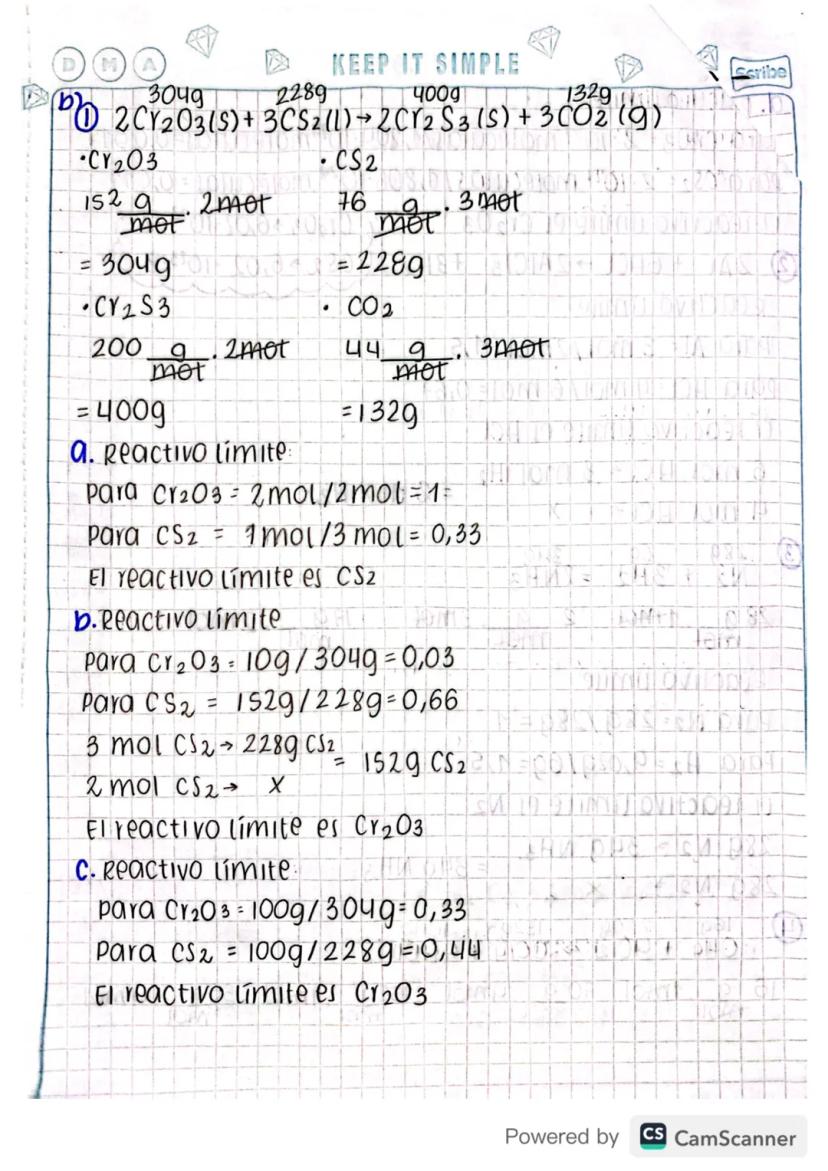 D M A KEEP IT SIMPLE Scribe
304g 228g 400g 132g
b) ① 2Cr2O3(s) + 3CS2(l) → 2Cr2S3(s) + 3CO2(g)
•Cr2O3 • CS2
152 g/mol . 2mol 76 g/mol . 3mol
= 304g = 228g
•Cr2S3 • CO2
200 g/mol . 2mol 44 g/mol . 3mol
= 400g =132g
a. Reactivo límite:
para Cr2O3 = 2mol/2mol = 1
para CS2 = 1mol/3mol = 0,33
El reactivo límite es CS2
b. Reactivo límite
para Cr2O3 = 10g/304g = 0,03
para CS2 = 152g/228g = 0,66
3 mol CS2 → 228g CS2 = 152g CS2
2 mol CS2 → X
El reactivo límite es Cr2O3
c. Reactivo límite:
para Cr2O3 = 100g/304g = 0,33
para CS2 = 100g/228g = 0,44
El reactivo límite es Cr2O3
Powered by CS CamScanner